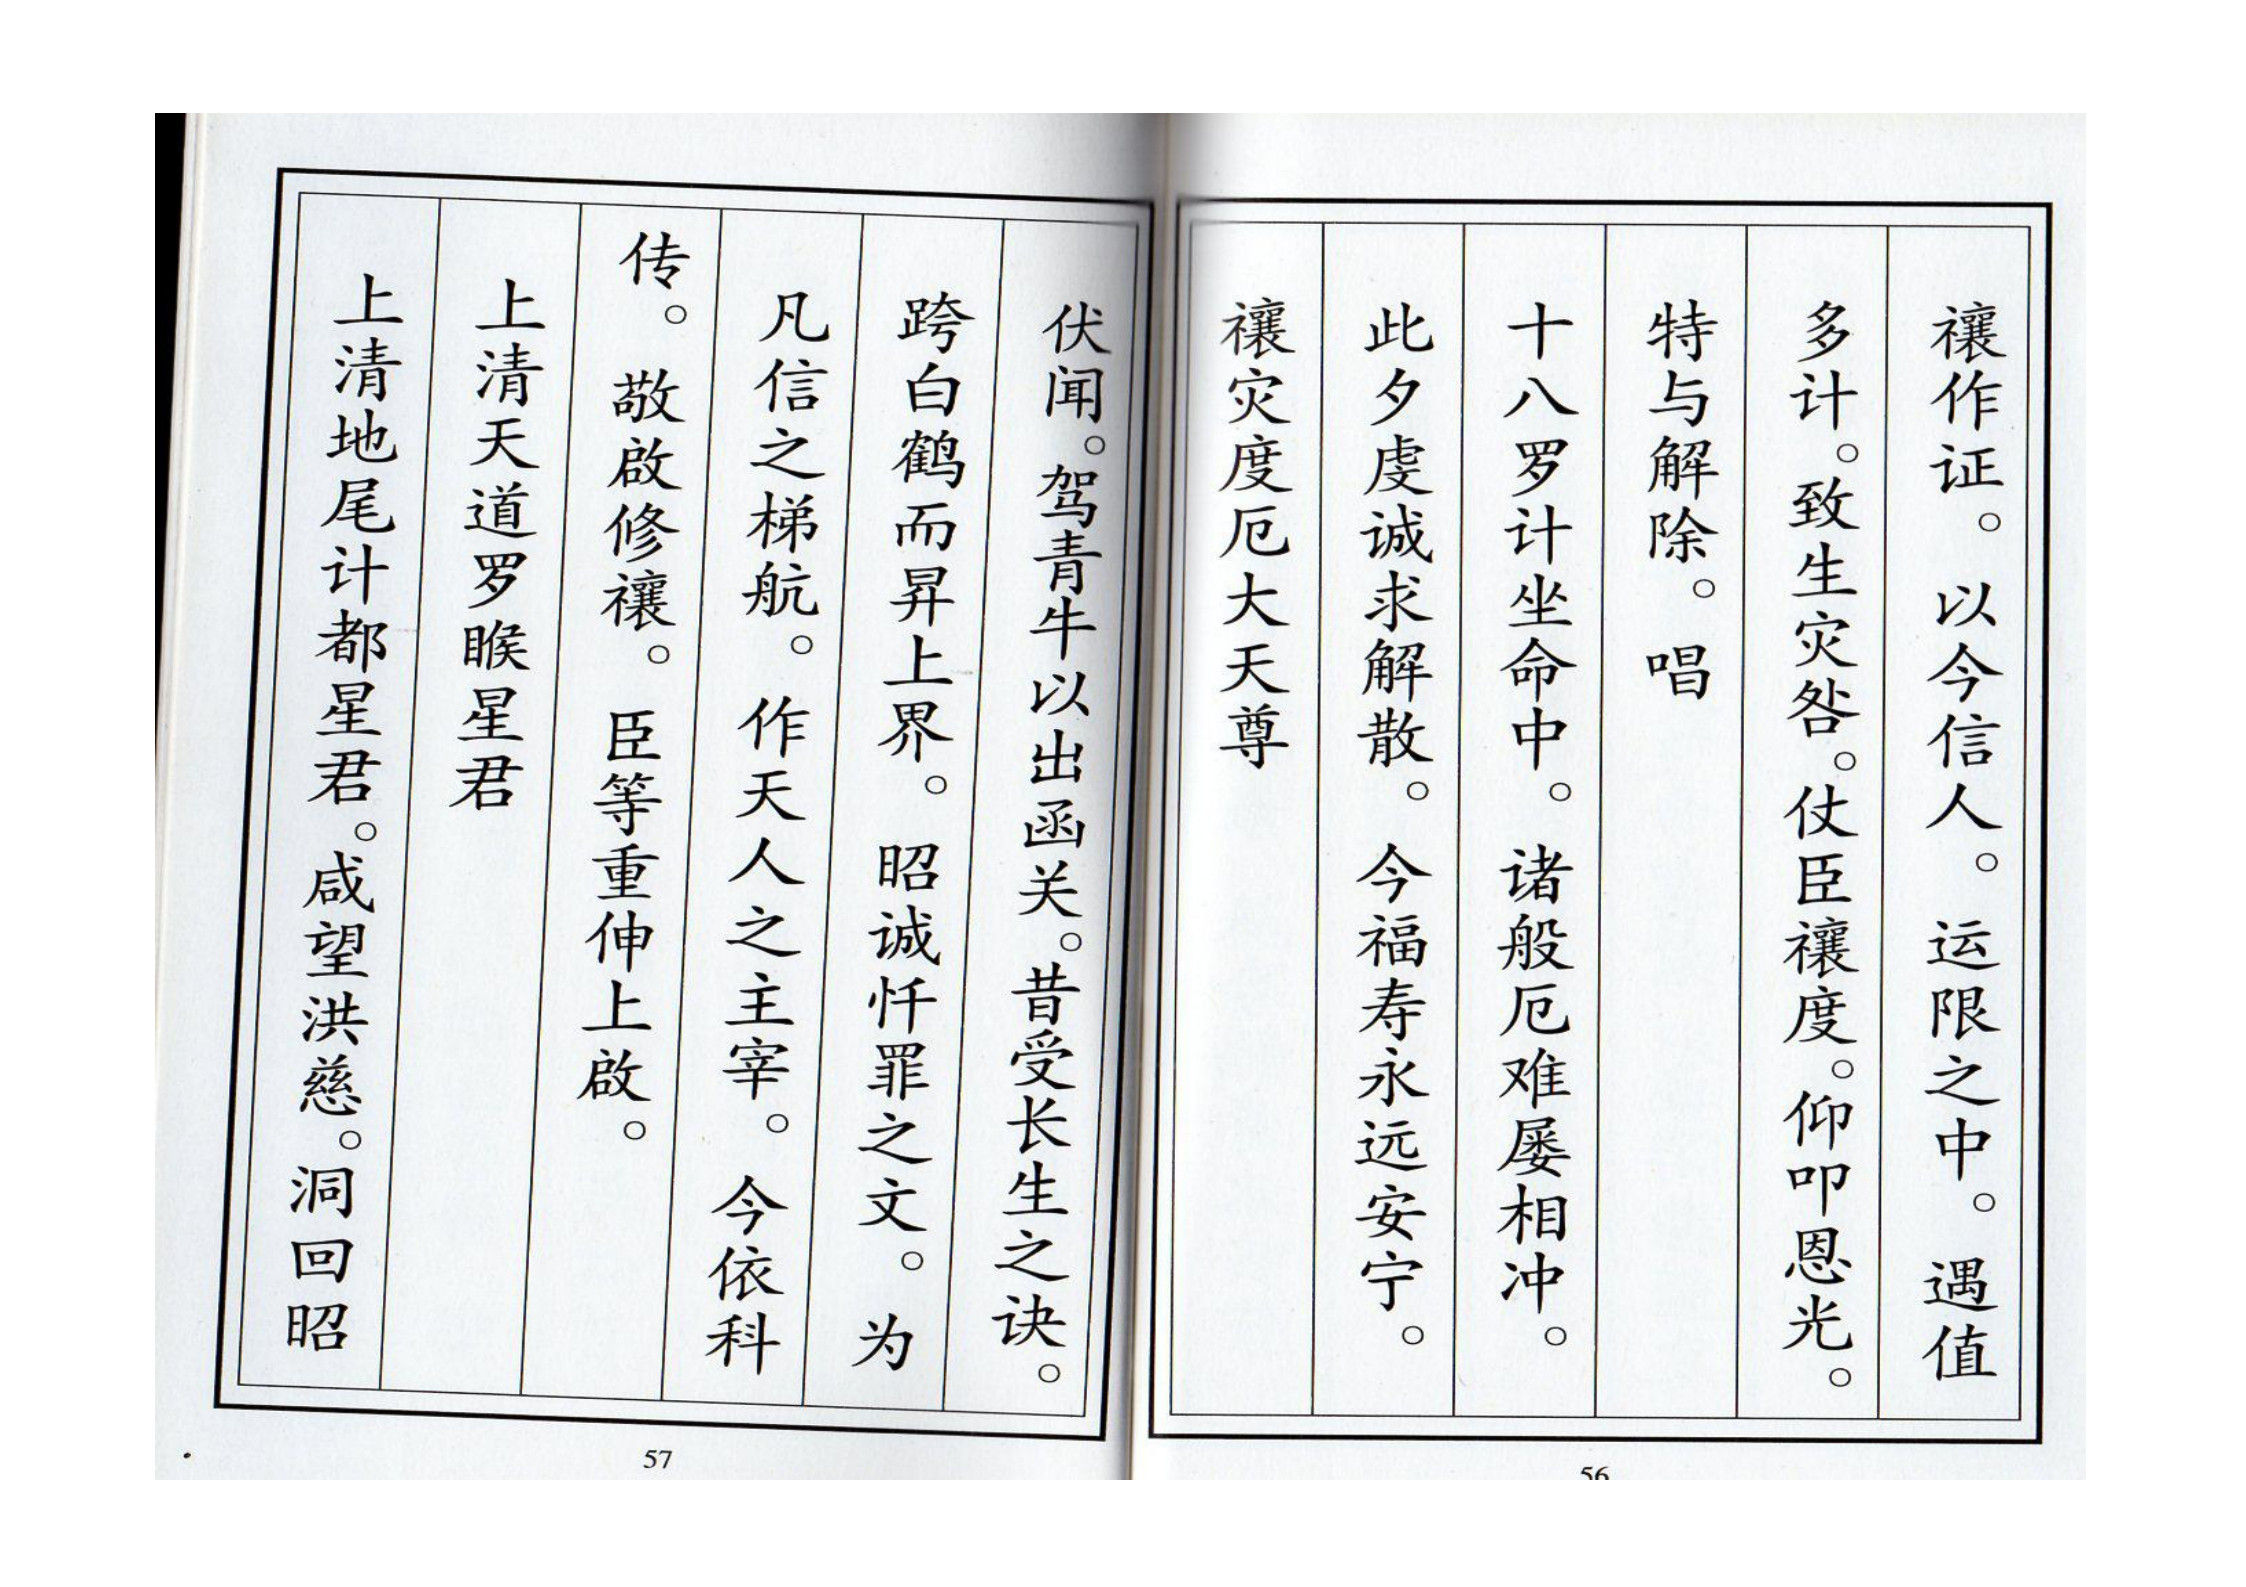 禳作证。以今信人。运限之中。遇值
多计。致生灾咎。仗臣禳度。仰叩恩光。
特与解除。唱
十八罗计坐命中。诸般厄难屡相冲。
此夕虔诚求解散。今福寿永远安宁。
禳灾度厄大天尊
56
伏闻。驾青牛以出函关。昔受长生之诀。
跨白鹤而昇上界。昭诚忏罪之文。为
凡信之梯航。作天人之主宰。今依科
传。敬啟修禳。臣等重伸上啟。
上清天道罗睺星君
上清地尾计都星君。咸望洪慈。洞回昭
57